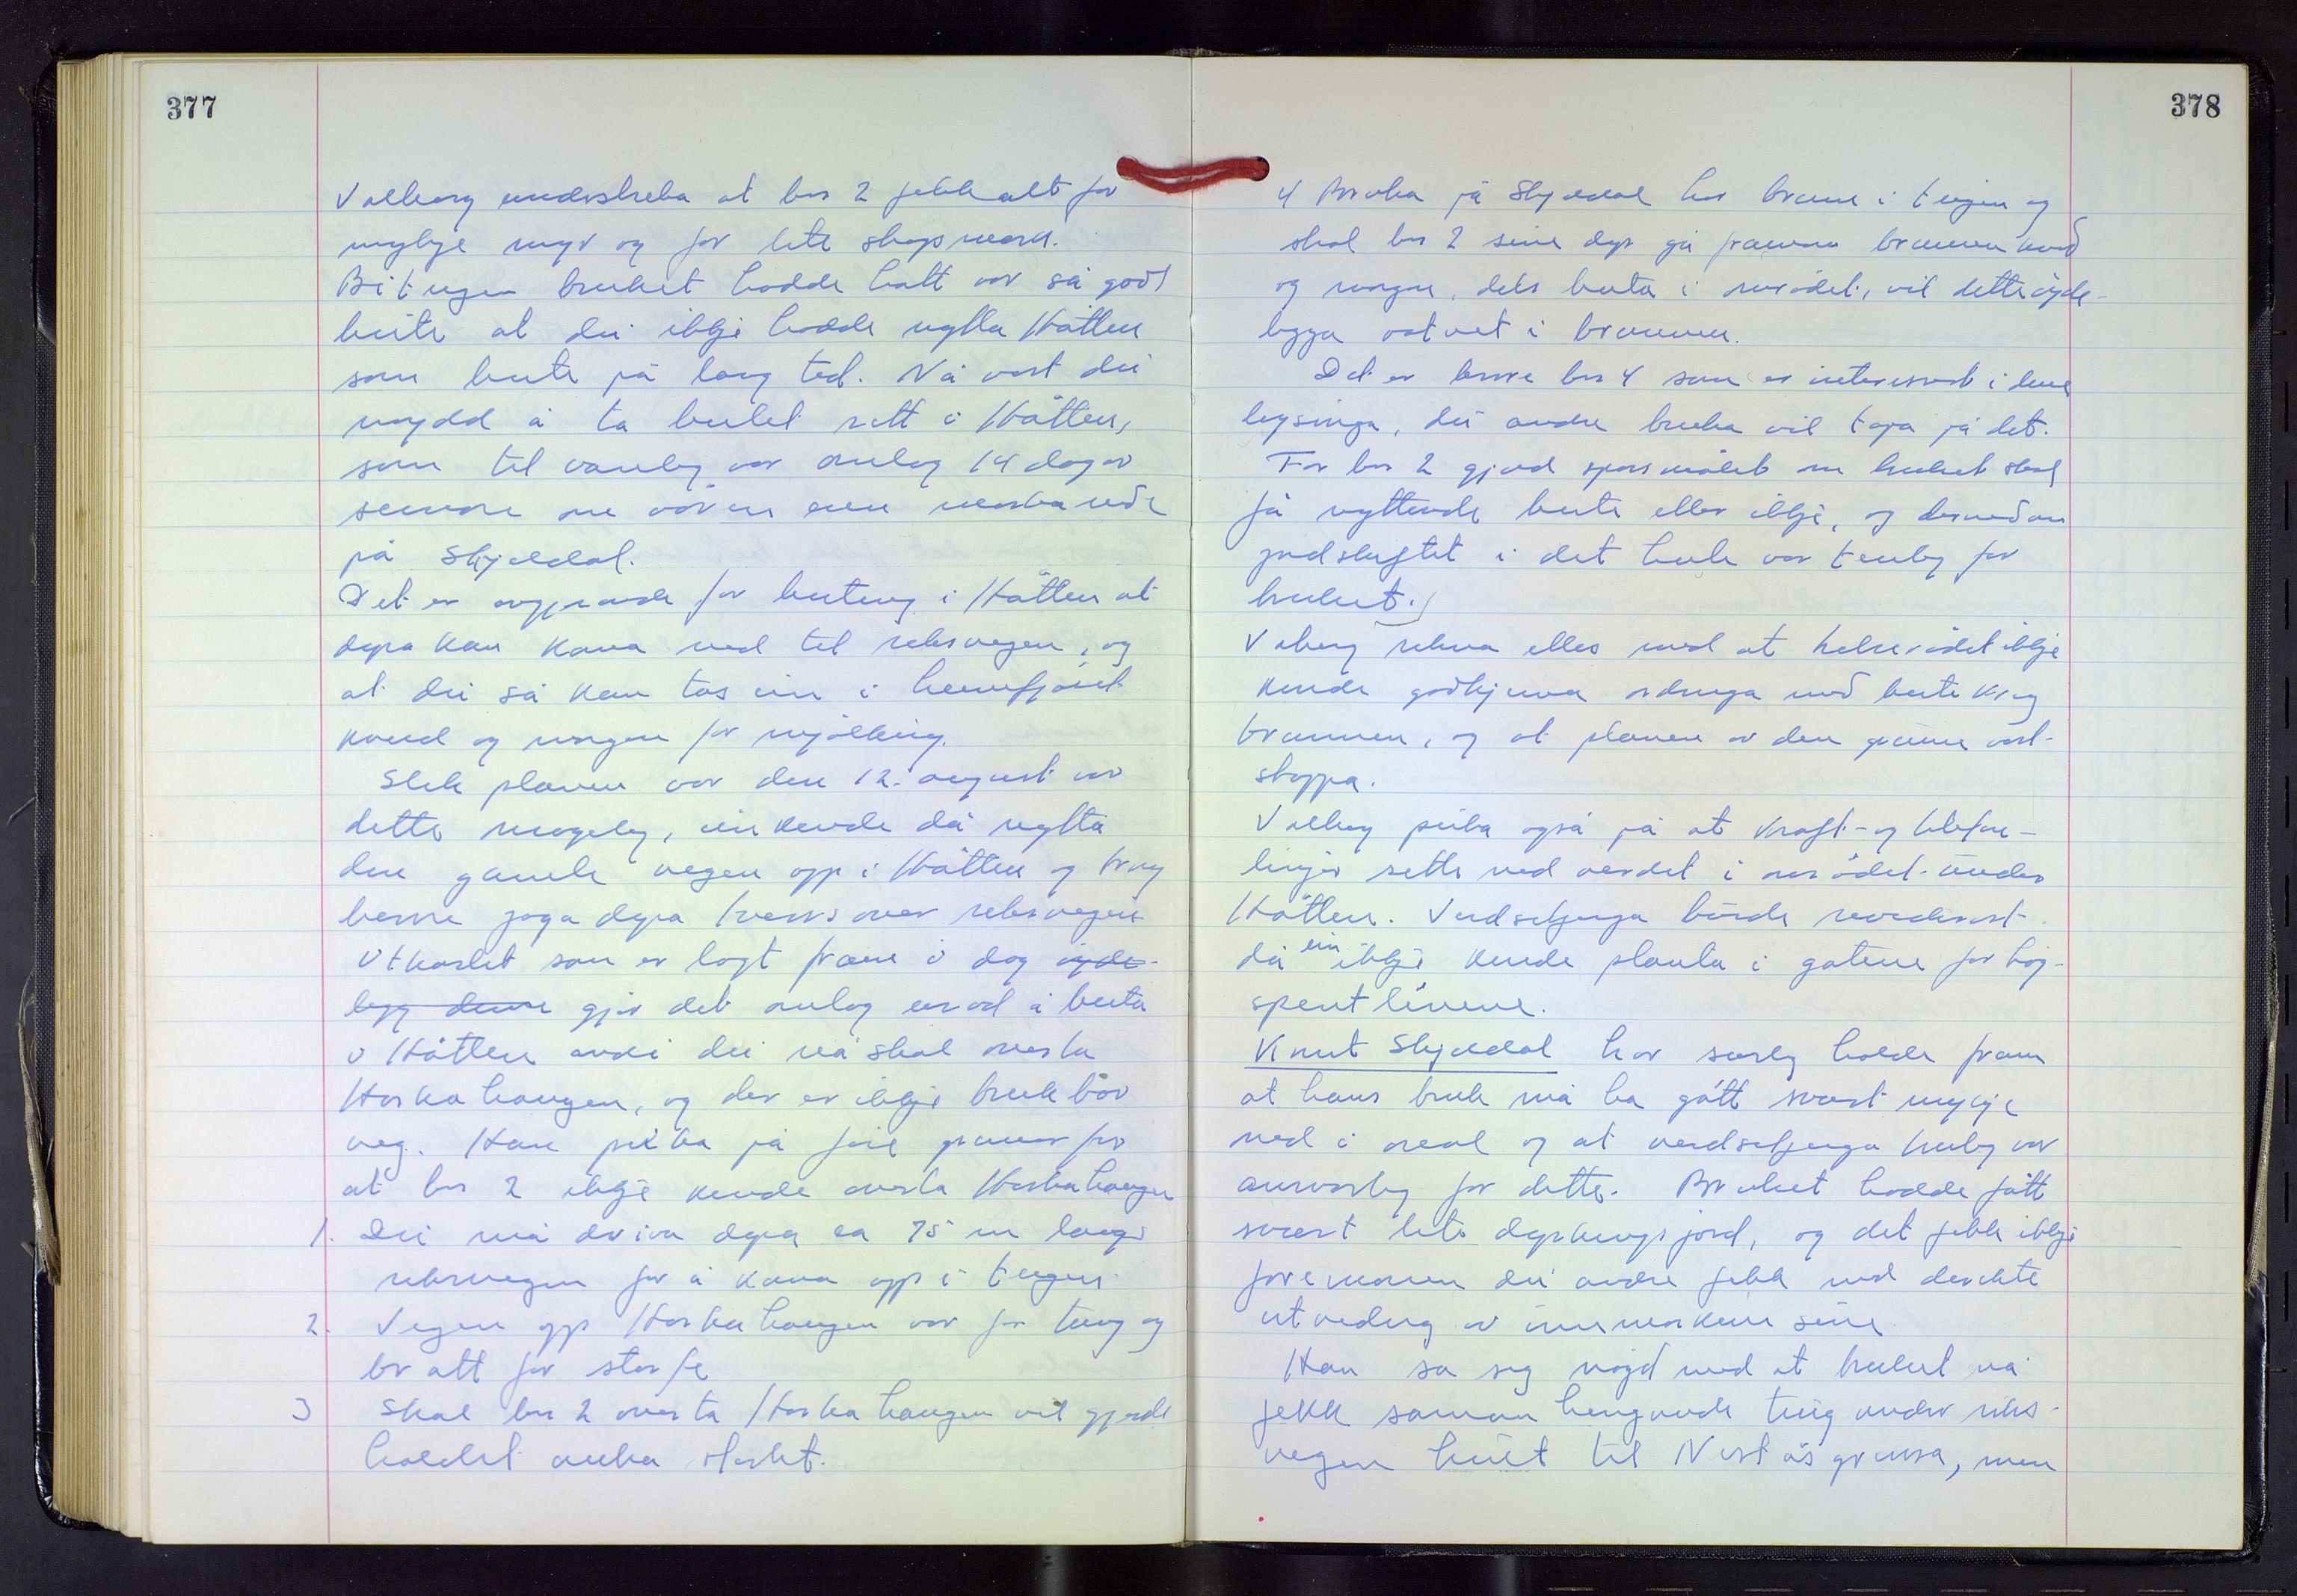 377
Valberg understreka at bnr 2 fekk alt for
mykje myr og for lite skogsmark.
Beitingen bruket hadde hatt var så godt
beite at dei ikkje hadde nytta Håtten
som beite på lang tid. Nå vart dei
nøydd å ta beitet sitt i Håtten,
som til vanleg var omlag 14 dagar
seinare om våren enn marka nede
på Skjeldal.
Det er avgjerande for beiting i Håtten at
dyra kan koma ned til riksvegen, og
at dei så kan tas inn i heimfjøset
kveld og morgon for mjølking.
Slik planen var den 12. august var
dette mogeleg, ein kunde då nytta
den gamle vegen opp i Håtten og trong
berre jaga dyra tvers over riksvegen
Utkastet som er lagt fram i dag øyde-
legg denne gjer det omlag uråd å beita
i Håtten avdi dei nå skal over ta
Horkahaugen, og der er ikkje brukbar
veg. Han peika på fire grunnar for
at bnr 2 ikkje kunde over ta Horkahaugen
1. Dei må driva dyra ca 75 m langs
riksvegen for å koma opp i teigen.
2. Vegen opp Horkahaugen var for tung og
bratt for storfe
3 Skal bnr 2 over ta Horkahaugen vil gjerde
haldet auka sterkt.
378
4 Bruka på Skjeldal har brunn i teigen og
skal bnr 2 sine dyr gå framom brunnen kveld
og morgon, dels beita i området, vil dette øyde-
leggja vatnet i brunnen.
Det er berre bnr 4 som er interessert i denne
løysinga, dei andre bruka vil tapa på det.
For bnr 2 gjeld spørsmålet om bruket skal
få nyttande beite eller ikkje, og dermed om
jordskiftet i det heile var tenleg for
bruket.
Valberg rekna elles med at helserådet ikkje
kunde godkjenna ordninga med beite kring
brunnen, og at planen av den grunn vart
stoppa.
Valberg peika også på at kraft- og telefon-
linjer sette ned verdet i området under
Håtten. Verdsetjinga burde reviderast
då ein ikkje kunde planta i gatene for høg-
spentlinene.
Knut Skjeldal har særleg halde fram
at hans bruk må ha gått svært mykje
ned i areal og at verdsetjinga truleg var
ansvarleg for dette. Bruket hadde fått
svært lite dyrkingsjord, og det fekk ikkje
foremonen dei andre fekk med direkte
utviding av innmarkene sine.
Han sa seg nøgd med at bruket nå
fekk samanhengande teig under riks-
vegen heilt til Nestås grensa, men